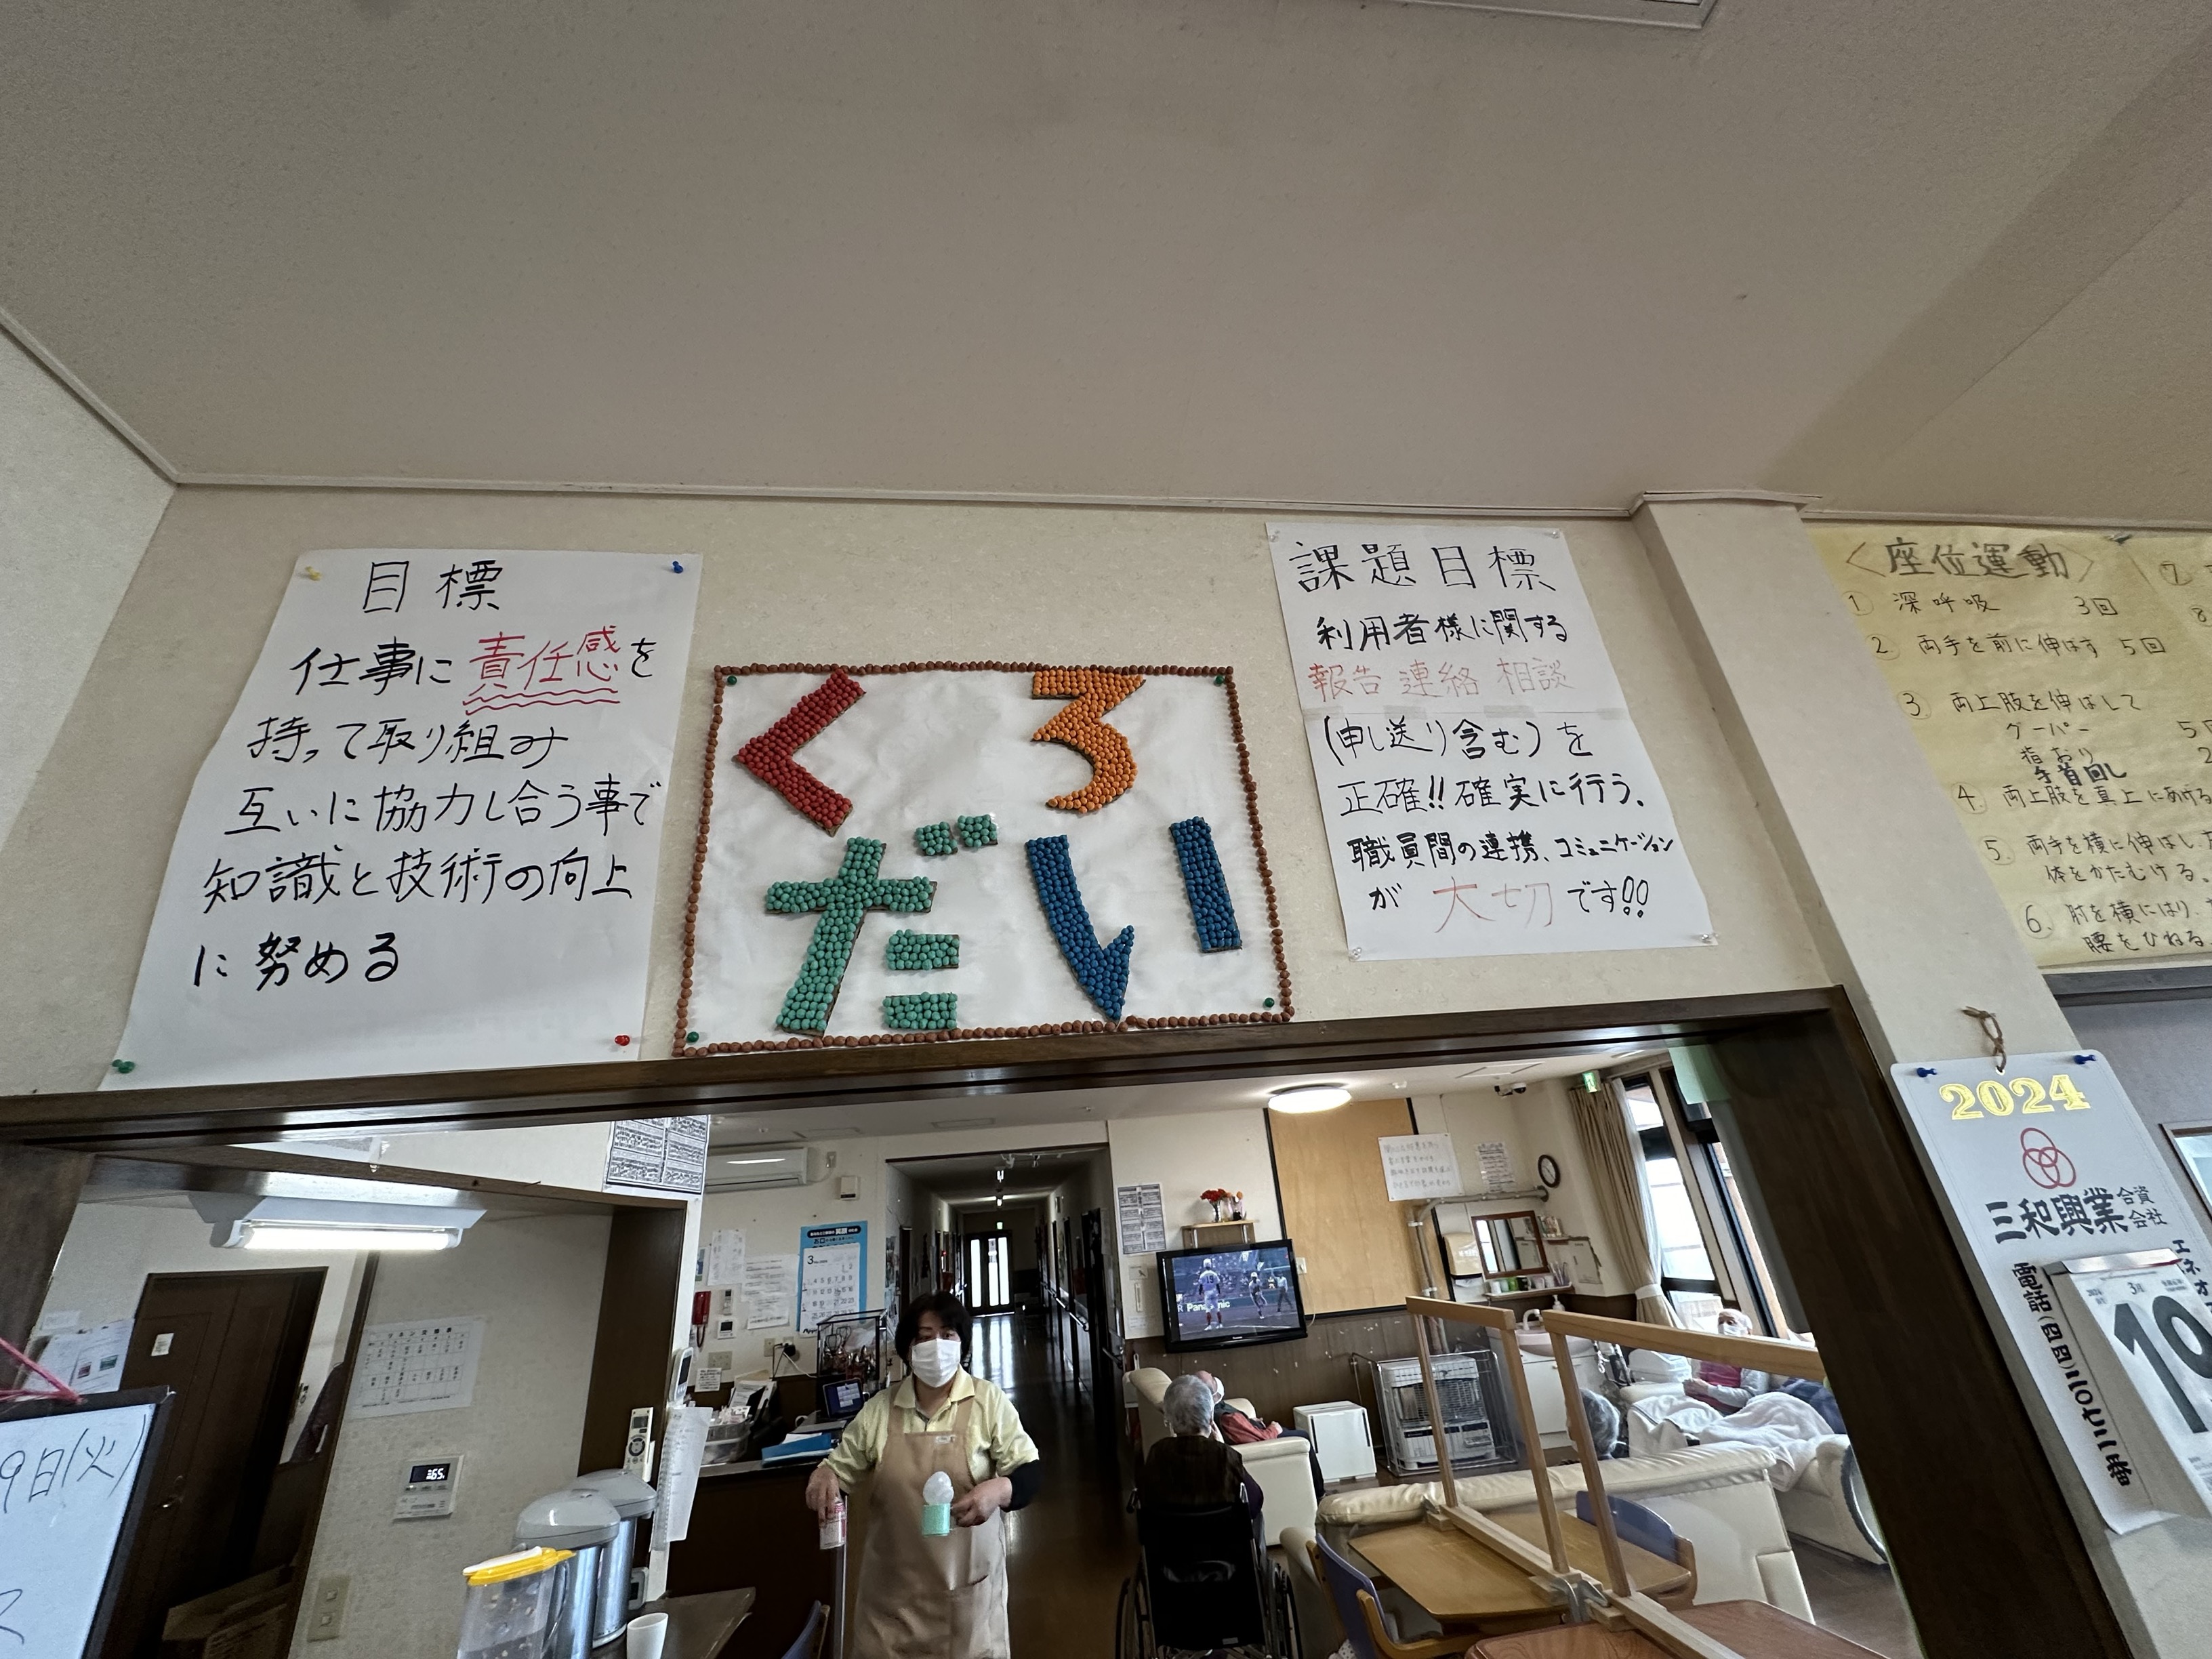 目標
仕事に責任感を
持って取り組み
互いに協力し合う事で
知識と技術の向上
に努める
くろ
だい
課題目標
利用者様に関する
報告 連絡 相談
(申し送り含む)を
正確!!確実に行う。
職員間の連携、コミュニケーション
が 大切です!!
<座位運動>
① 深呼吸 3回
② 両手を前に伸ばす 5回
③ 両上肢を伸ばして
グーパー 5
指おり 2
手首回し
4. 両上肢を真上にあげる
5. 両手を横に伸ばし
体をかたむける。
6. 肘を横にはり
腰をひねる
⑦
8
2024
三和興業 合資会社
エネオ
電話(四四)二〇七二番
3月
19
9日(火)
3
Panasonic